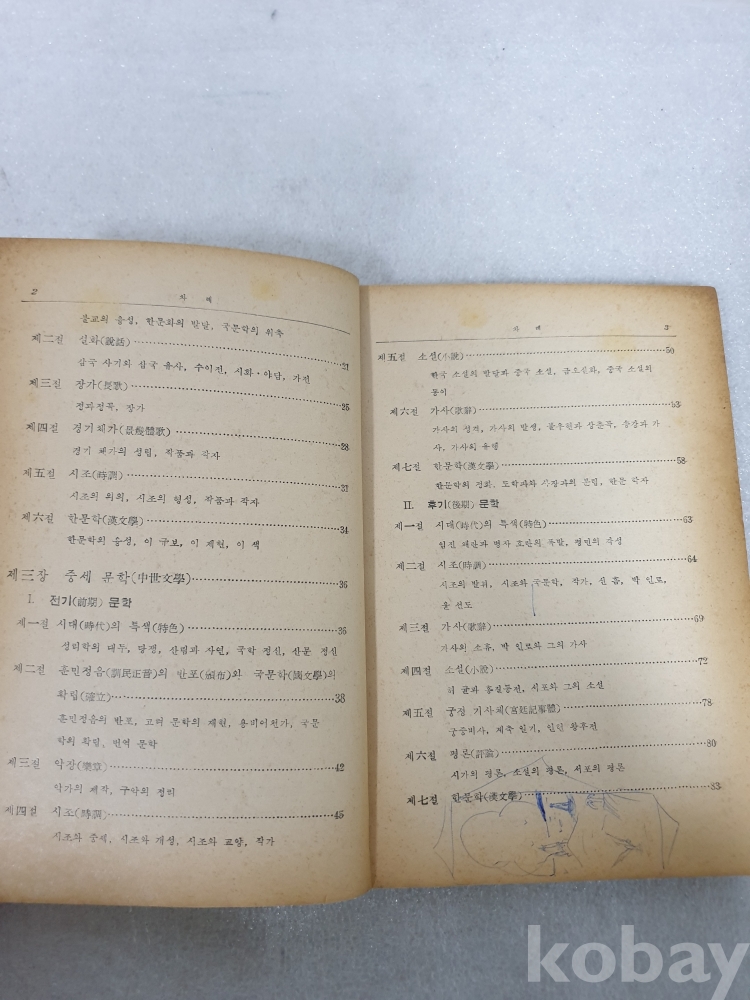 2
차 례
불교의 융성, 한문화의 발달, 국문학의 위축
제二절 설화(說話) 21
삼국 사기와 삼국 유사, 수이전, 시화·야담, 가전
제三절 장가(長歌) 25
정과정곡, 장가
제四절 경기체가(景幾體歌) 28
경기 체가의 성립, 작품과 작자
제五절 시조(時調) 31
시조의 의의, 시조의 형성, 작품과 작자
제六절 한문학(漢文學) 34
한문학의 융성, 이 규보, 이 제현, 이 색
제三장 중세 문학(中世文學) 36
I. 전기(前期) 문학
제一절 시대(時代)의 특색(特色) 36
성리학의 대두, 당쟁, 산림과 자연, 국학 정신, 산문 정신
제二절 훈민정음(訓民正音)의 반포(頒布)와 국문학(國文學)의
확립(確立) 38
훈민정음의 반포, 고려 문학의 재현, 용비어천가, 국문
학의 확립, 번역 문학
제三절 악장(樂章) 42
악가의 제작, 구악의 정리
제四절 시조(時調) 45
시조와 중세, 시조와 개성, 시조와 교양, 작가
차 례
3
제五절 소설(小說) 50
한국 소설의 발달과 중국 소설, 금오신화, 중국 소설의
동이
제六절 가사(歌辭) 53
가사의 성격, 가사의 발생, 불우헌과 상춘곡, 송강과 가
사, 가사의 유행
제七절 한문학(漢文學) 58
한문학의 경화, 도학파와 사장파의 분립, 한문 작자
II. 후기(後期) 문학
제一절 시대(時代)의 특색(特色) 63
임진 왜란과 병자 호란의 폭발, 평민의 각성
제二절 시조(時調) 64
시조의 발휘, 시조와 국문학, 작가, 신 흠, 박 인로,
윤 선도
제三절 가사(歌辭) 69
가사의 소휴, 박 인로와 그의 가사
제四절 소설(小說) 72
허 균과 홍길동전, 서포와 그의 소설
제五절 궁정 기사체(宮廷記事體) 78
궁중비사, 계축 일기, 인현 왕후전
제六절 평론(評論) 80
시가의 평론, 소설의 평론, 서포의 평론
제七절 한문학(漢文學) 83
kobay